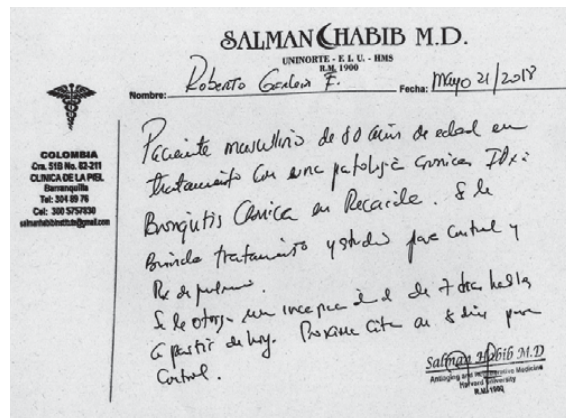 SALMAN CHABIB M.D.
UNINORTE - E I. U. - HMS
R.M. 1900
Nombre: Roberto Gerlein E. Fecha: Mayo 21/2018
COLOMBIA
Cra. 51B No. 82-211
CLINICA DE LA PIEL
Barranquilla
Tel: 304 89 76
Cel: 300 5757830
salmanhabibinstitute@gmail.com
Paciente masculino de 80 años de edad en
tratamiento con una patologia cronica IDx:
Bronquitis Cronica en Recaida. Se le
Brinda tratamiento y estudio para Control y
Rx de pulmon.
Se le otorga una incapacidad de 7 dias habiles
a partir de hoy. Proxima Cita en 8 dias para
Control.
Salman Habib M.D
Antiaging and Medicine
Harvard University
R.M. 1900